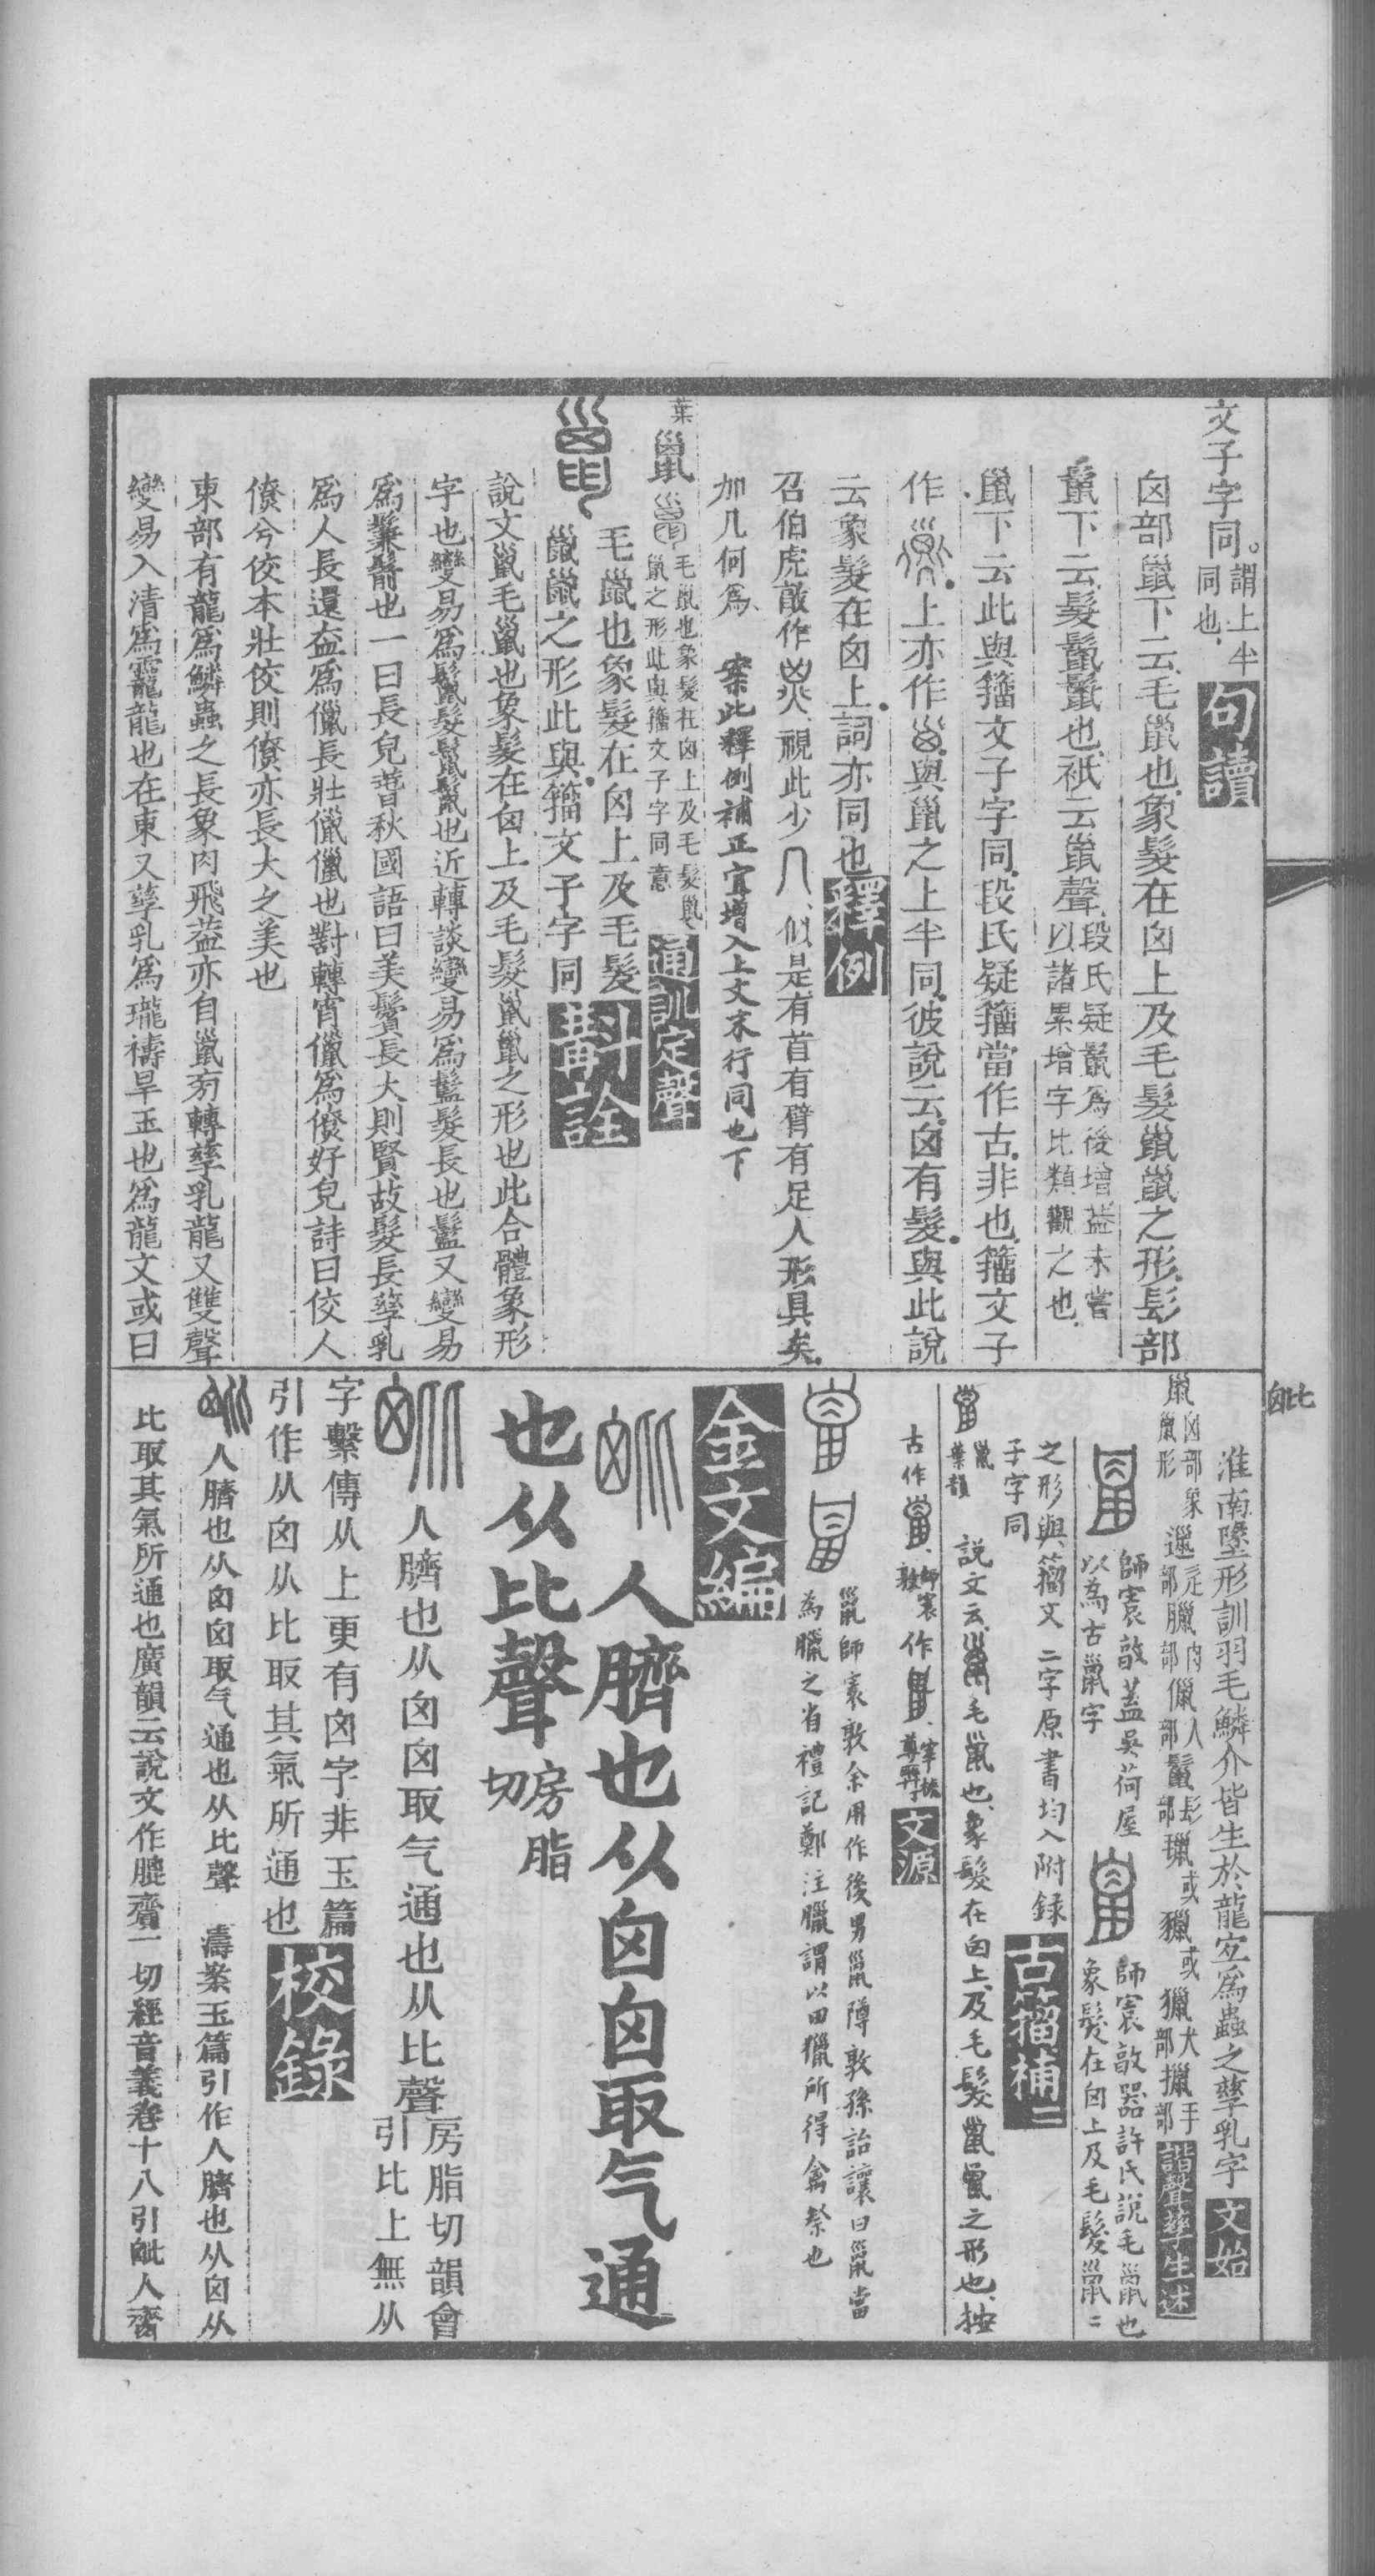 文子字同。謂上半同也句讀
囟部巤下云毛巤也象髮在囟上及毛髮巤巤之形髟部
鬣下云髮鬣鬣也祇云巤聲段氏疑鬣為後增益未嘗以諸累增字比類觀之也
巤下云此與籀文子字同段氏疑籀當作古非也籀文子
作 上亦作 與巤之上半同彼說云囟有髮與此說
云象髮在囟上詞亦同也釋例
召伯虎敢作 視此少 似是有首有臂有足人形具矣
加几何為 案此釋例補正宜增入上文末行同也下
葉 巤 毛巤也象髮在囟上及毛髮巤巤之形此與籀文子字同意通訓定聲
毛巤也象髮在囟上及毛髮
巤巤之形此與籀文子字同斠詮
說文巤毛巤也象髮在囟上及毛髮巤巤之形也此合體象形
字也變易為鬣髮鬣鬣也近轉談變易為鬑髮長也又變易
為人長還益為儠長壯儠儠也對轉宵儠為僚好皃詩曰佼人
僚兮佼本壯佼則僚亦長大之美也
東部有龍為鱗蟲之長象肉飛蓋亦自巤旁轉孳乳龍又雙聲
變易入清為靇龍也在東又孳乳為瓏禱旱玉也為龍文或曰
淮南墬形訓羽毛鱗介皆生於龍宐為蟲之孳乳字文始
巤囟部象巤形 邋辵部臘肉部儠人部鬣髟部 或獵或獵犬部擸手部諧聲孳生述
師寰敢蓋吳荷屋以為古巤字 師寰敢器許氏說毛巤也象髮在囟上及毛髮巤二
之形與籀文子字同 二字原書均入附錄古籀補二
巤葉韻 說文云 毛巤也象髮在囟上及毛髮巤巤之形也按
古作 師寰敦作 宰椃尊彝文源
巤師寰敦余用作後男巤障敦孫詒讓曰巤當為臘之省禮記鄭注臘謂以田獵所得禽祭也
金文編
人臍也从囟囟取气通
也从比聲房脂切
人臍也从囟囟取气通也从比聲房脂切韻會引比上無从
字繫傳从上更有囟字非玉篇
引作从囟从比取其氣所通也校錄
人臍也从囟囟取气通也从比聲 濤案玉篇引作人臍也从囟从
比取其氣所通也廣韻云說文作膍齎一切經音義卷十八引毗人齎
毗